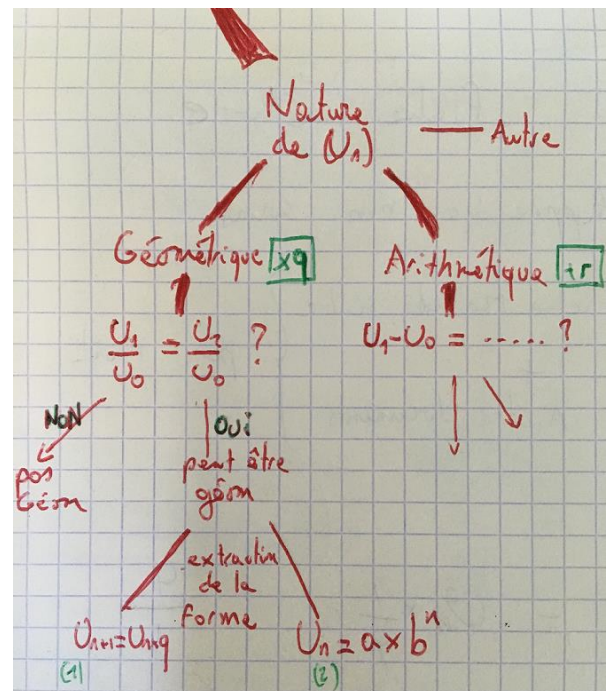 Nature
de (Un)
Autre
Géométrique ×q
Arithmétique +r
U1/U0 = U2/U0 ?
U1-U0 = ..... ?
NON
OUI
pas
Géom
peut être
géom
extraction
de la
forme
Un+1=Un×q
Un = a×b^n
(1)
(2)